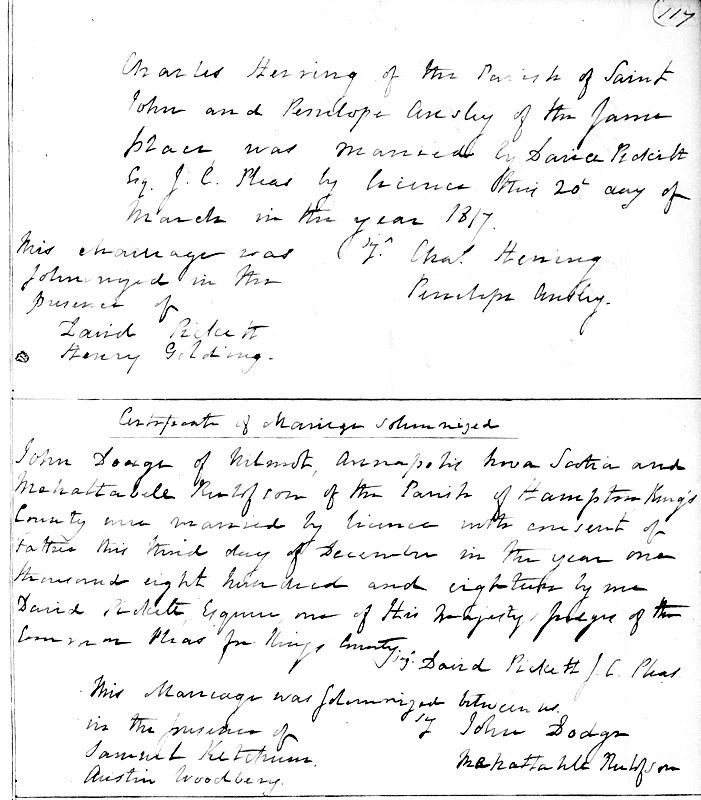 117
Charles Herring of the Parish of Saint
John and Penelope Ansley of the same
place was married by David Pickett
Esq. J. C. Pleas by licence this 20 day of
March in the year 1817.
This Marriage was
Solemnized in the
presence of
David Pickett
Henry Golding.
Chas. Herring
Penelope Ansley.
Certificate of Marriage Solemnized
John Dodge of Wilmot, Annapolis Nova Scotia and
Mehattabele Rulofson of the Parish of Hampton Kings
County were married by licence with consent of
Father this third day of December in the year one
thousand eight hundred and eighteen by me
David Pickett Esquire, one of His Majestys Judges of the
Common Pleas for Kings County.
Sig. David Pickett J. C. Pleas
This Marriage was Solemnized between us
in the presence of
Samuel Ketchum.
Austin Woodbery.
John Dodge
Mehattable Rulofson